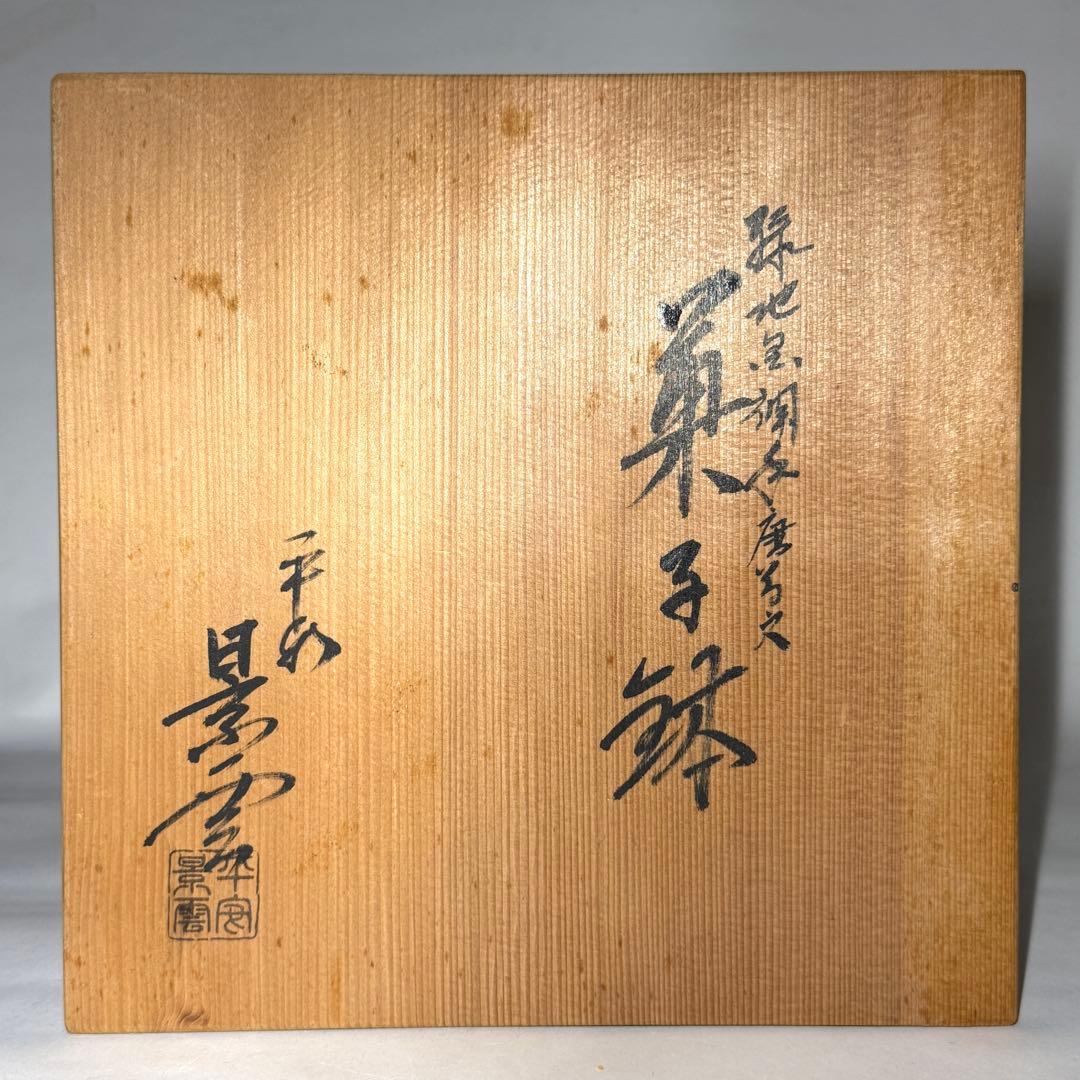 緑地金襴手唐草文
菓子鉢
平安
景雲
平安
景雲